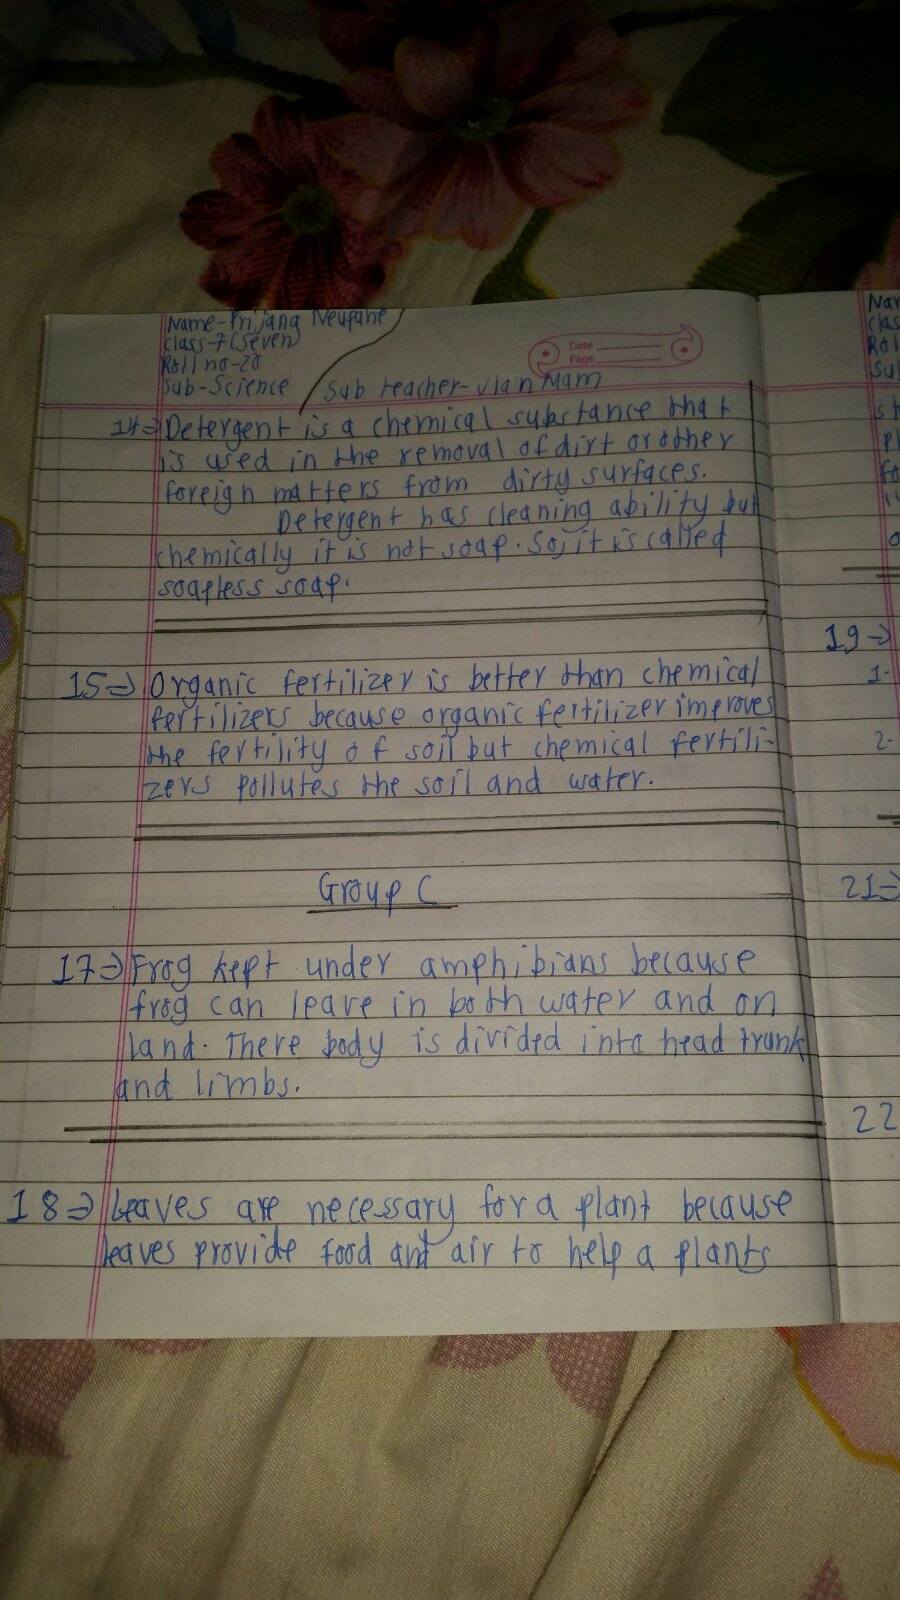 Name-Prijang Neupane
Class-7(Seven)
Roll no-20
Sub-Science
Sub teacher- Mam
Date
Page
14⇒ Detergent is a chemical substance that
is used in the removal of dirt or other
foreign matters from dirty surfaces.
Detergent has cleaning ability but
chemically it is not soap. So, it is called
soapless soap.
15⇒ Organic fertilizer is better than chemical
fertilizers because organic fertilizer improves
the fertility of soil but chemical fertili-
zers pollutes the soil and water.
Group C
17⇒ Frog kept under amphibians because
frog can leave in both water and on
land. There body is divided into head trunk
and limbs.
18⇒ Leaves are necessary for a plant because
leaves provide food and air to help a plants
19⇒
1-
2-
21⇒
22